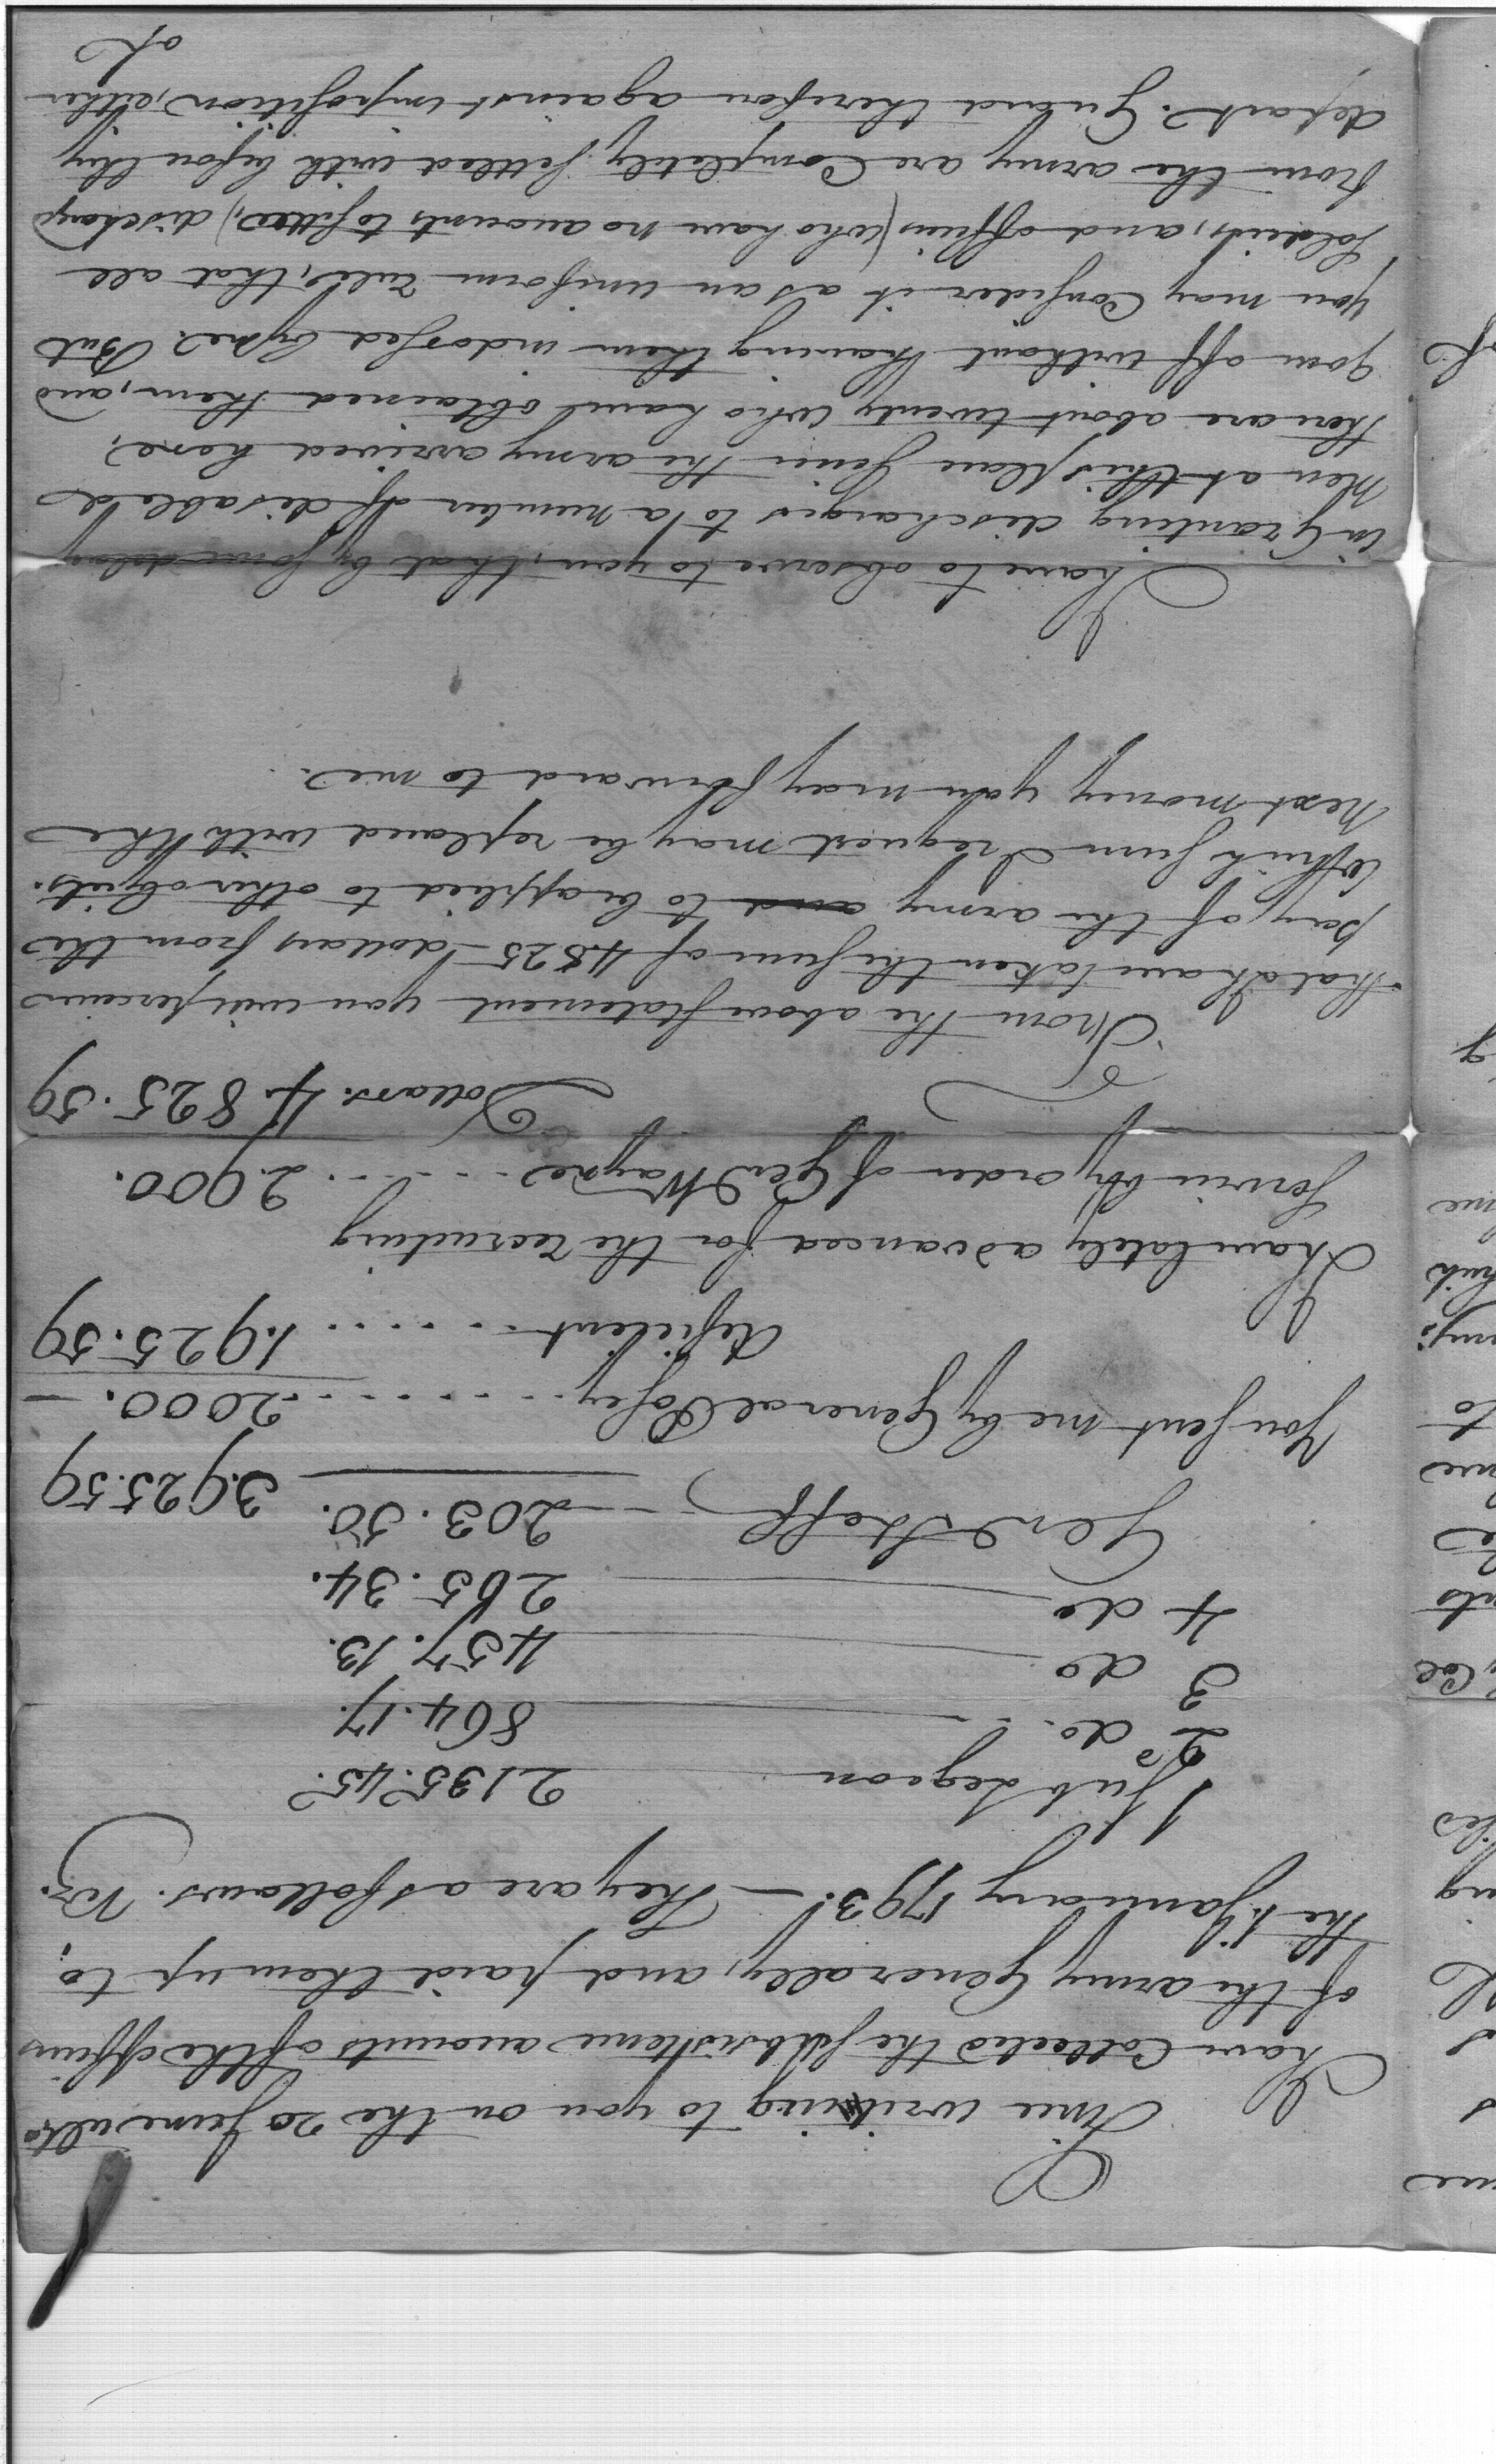 Since writing to you on the 20 June ulto
I have Collected the subsistence accounts of the officers
of the army Generally, and paid them up to,
the 1st January 1793. — They are as follows. Viz.
1 Sub Legion 2135.45.
2d do. 864.17.
3 do 457.13.
4 do 265.34.
Genl Staff 203.50. 3.925.59
You sent me by General Posey ...... 2000. —
deficient ...... 1.925.59
I have lately advanced for the recruiting
service by order of Genl Wayne ...... 2.900.
Dollars. 4.825.59
From the above statement you will perceive
that I have taken the sum of 4825 dollars from the
pay of the army and to be applied to other objects.
Which sum I request may be replaced with the
next money you may forward to me.
I have to observe to you, that by some delay
in Granting discharges to a number of disabled
men at this place since the army arrived here,
there are about twenty who have obtained them, and
gon off without having them indorsed by me. But
you may Consider it as an uniform rule, that all
soldiers, and officers (who have no accounts to settle,) discharged
from the army are Completely settled with before they
depart. Guard therefore against imposition, either
of
of
g
me
to
Col
me